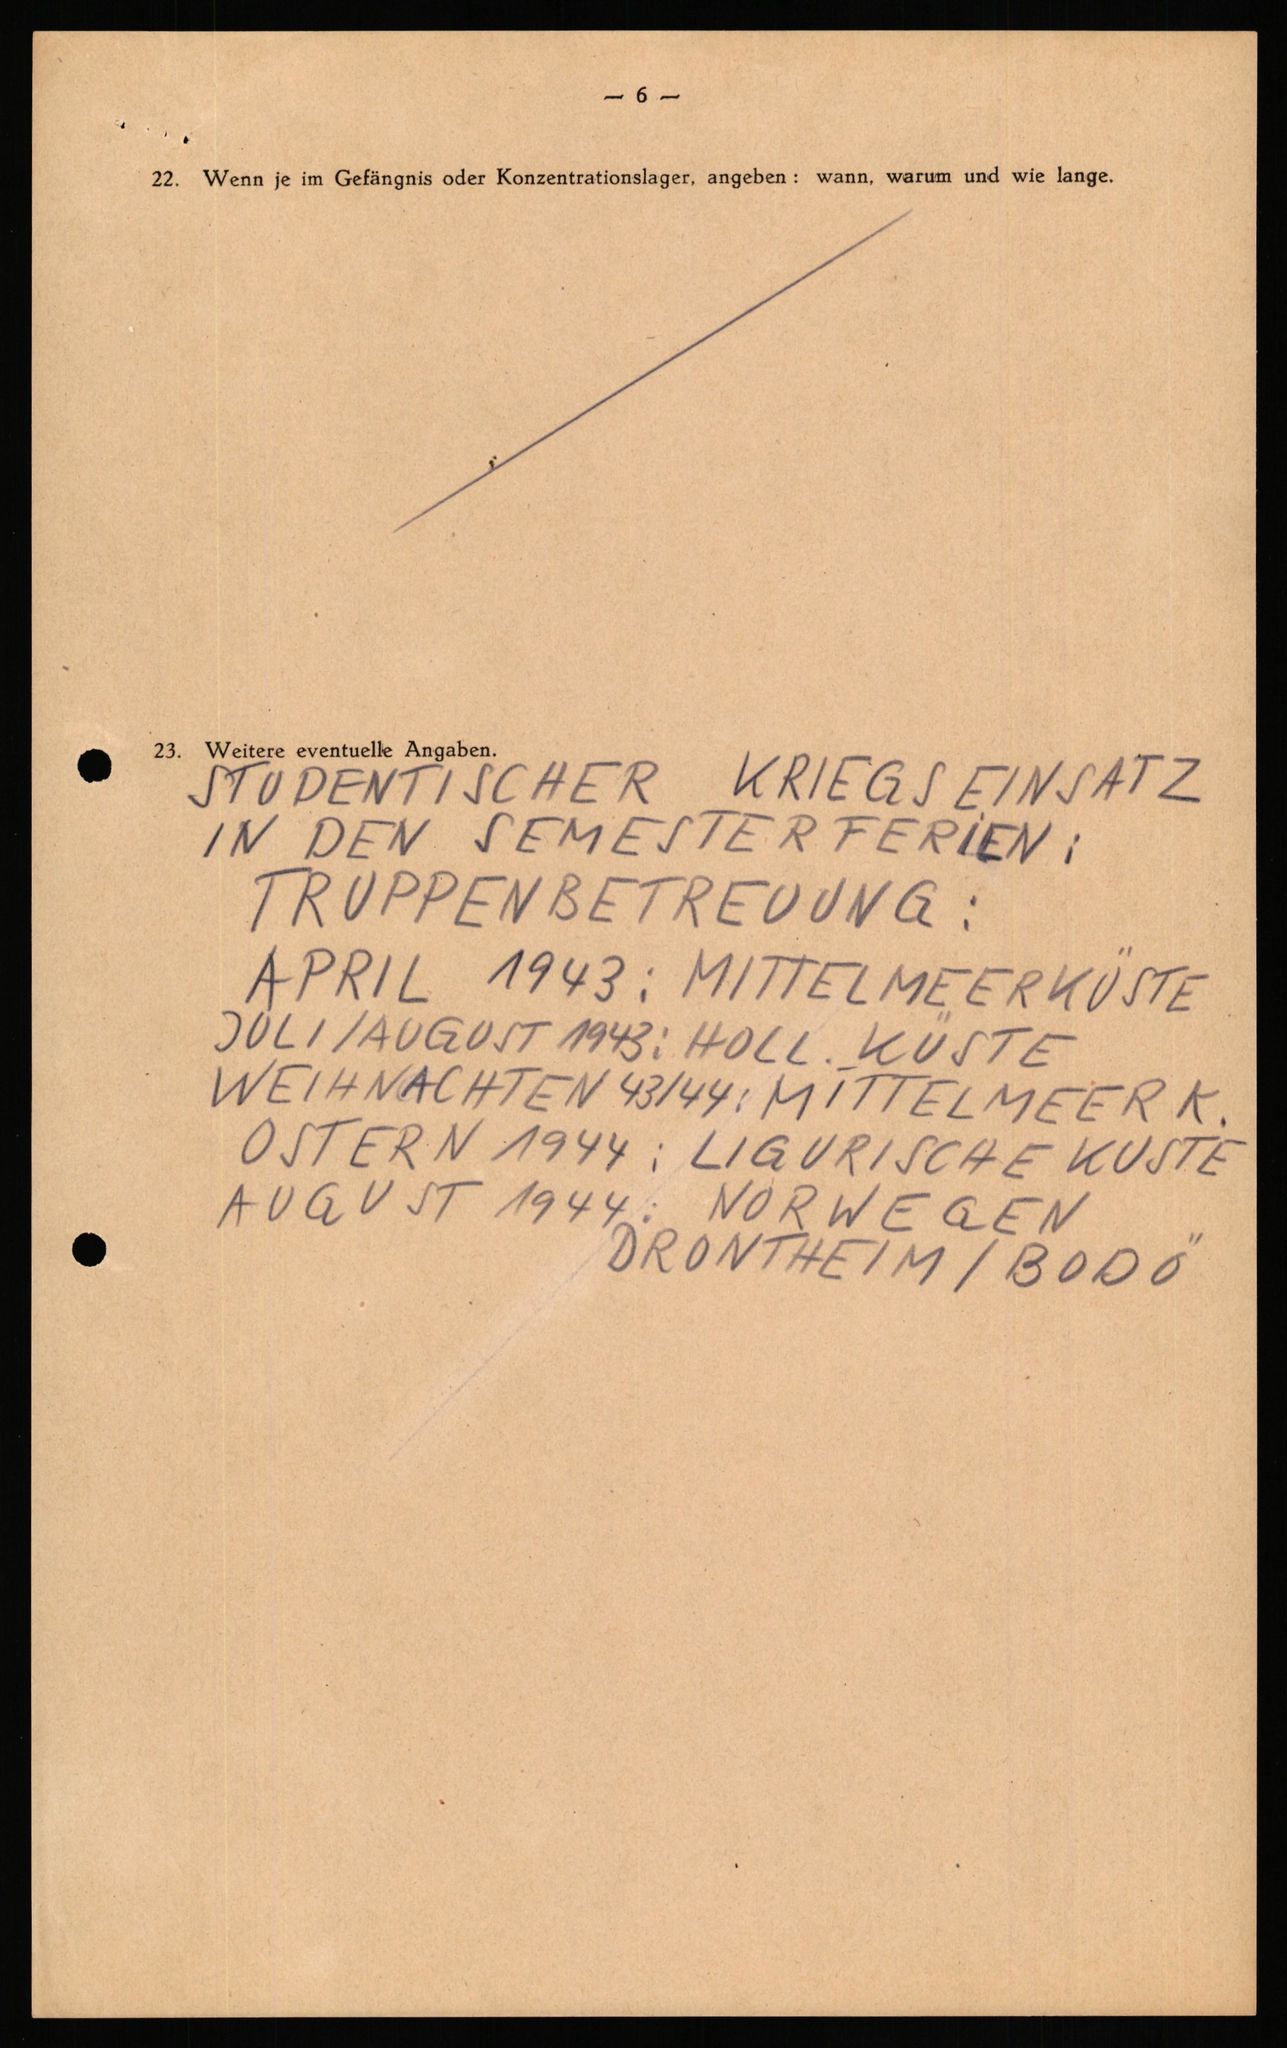 — 6 —
22. Wenn je im Gefängnis oder Konzentrationslager, angeben : wann, warum und wie lange.
23. Weitere eventuelle Angaben.
STUDENTISCHER KRIEGSEINSATZ
IN DEN SEMESTERFERIEN:
TRUPPENBETREUUNG:
APRIL 1943: MITTELMEERKÜSTE
JULI/AUGUST 1943: HOLL. KÜSTE
WEIHNACHTEN 43/44: MITTELMEERK.
OSTERN 1944: LIGURISCHE KUSTE
AUGUST 1944: NORWEGEN
DRONTHEIM/BODÖ